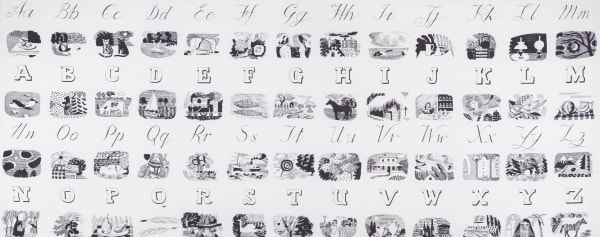 Aa Bb Cc Dd Ee Ff Gg Hh Ii Jj Kk Ll Mm
A B C D E F G H I J K L M
Nn Oo Pp Qq Rr Ss Tt Uu Vv Ww Xx Yy Zz
N O P Q R S T U V W X Y Z